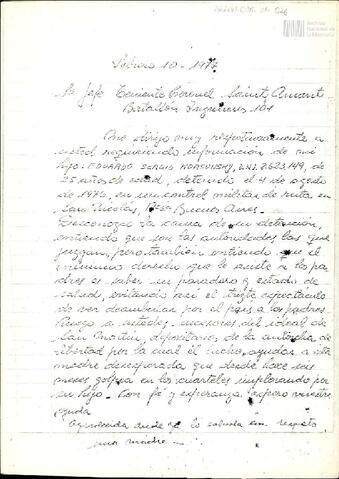 Archivo
Nacional de
la Memoria
Febrero 10 - 1977
Sr Jefe Teniente Coronel Saint Amant
Batallón Ingenieros 101
Me dirijo muy respetuosamente a
usted requiriendo información de mi
hijo: EDUARDO SERGIO KOROVSKY, L.N.I. 7.623.149, de
25 años de edad, detenido el 4 de agosto
de 1976, en un control militar de ruta, en
San Nicolás, Pcia/Buenos Aires.
Desconozco la causa de su detención,
entiendo que son las autoridades las que
juzgan, pero también entiendo que el
mínimo derecho que le asiste a los pa
dres es saber su paradero y estado de
salud, evitando así el triste espectáculo
de ver deambular por el país a los padres.
Ruego a ustedes, mayores del ideal de
San Martín, depositarios de la antorcha de
libertad por la cual él lucho, ayudar a esta
madre desesperada que desde hace seis
meses golpea en los cuarteles implorando por
su hijo. Con fé y esperanza espero vuestra
ayuda
Agradecida desde ya lo saluda con respeto
una madre